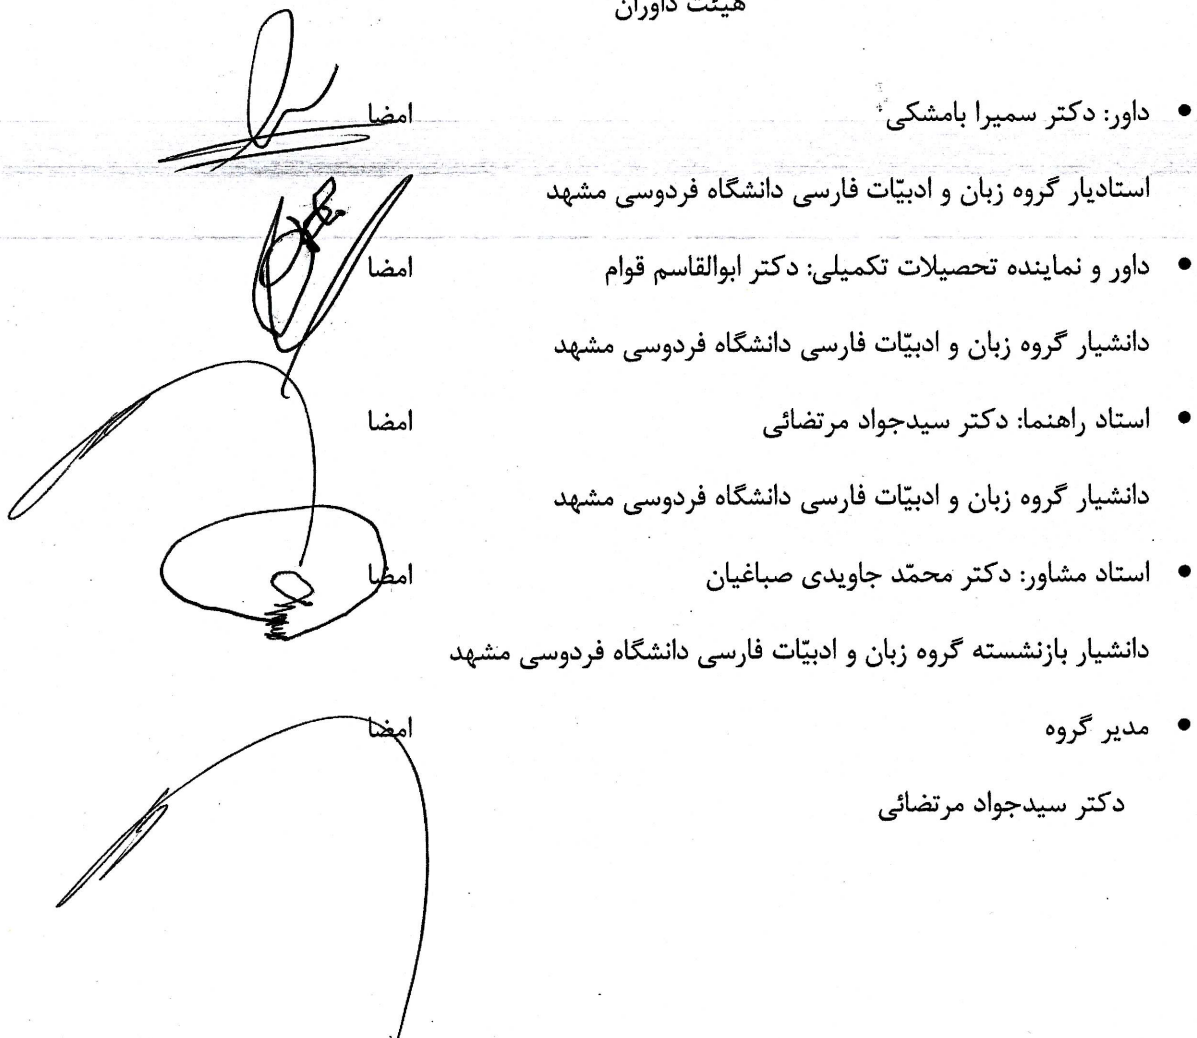 هیئت داوران
داور: دکتر سمیرا بامشکی امضا
استادیار گروه زبان و ادبیّات فارسی دانشگاه فردوسی مشهد
داور و نماینده تحصیلات تکمیلی: دکتر ابوالقاسم قوام امضا
دانشیار گروه زبان و ادبیّات فارسی دانشگاه فردوسی مشهد
استاد راهنما: دکتر سیدجواد مرتضائی امضا
دانشیار گروه زبان و ادبیّات فارسی دانشگاه فردوسی مشهد
استاد مشاور: دکتر محمّد جاویدی صباغیان امضا
دانشیار بازنشسته گروه زبان و ادبیّات فارسی دانشگاه فردوسی مشهد
مدیر گروه امضا
دکتر سیدجواد مرتضائی